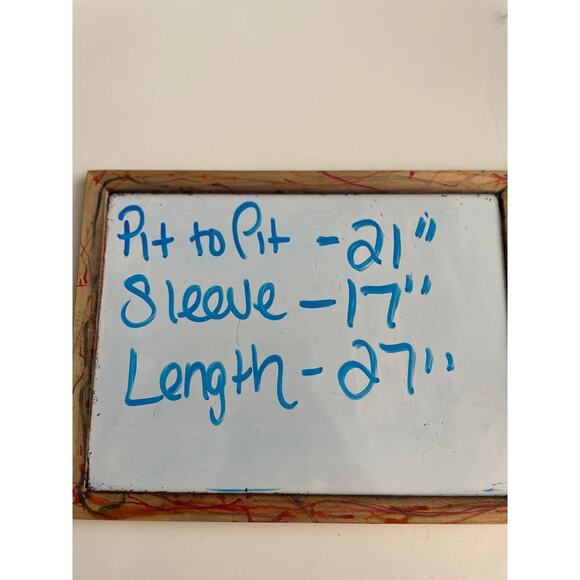 Pit to Pit - 21"
Sleeve - 17"
Length - 27"